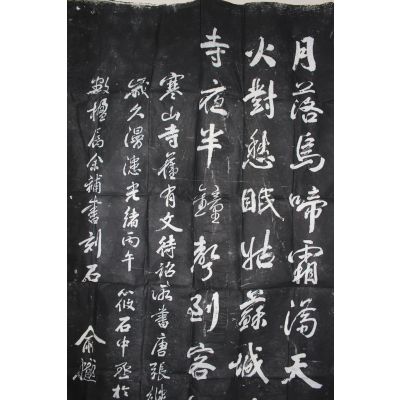 月落烏啼霜滿天
火對愁眠姑蘇城
寺夜半鐘聲到客
寒山寺舊有文待詔所書唐張繼
歲久漫漶光緒丙午 筱石中丞於
數楹屬余補書刻石
俞樾